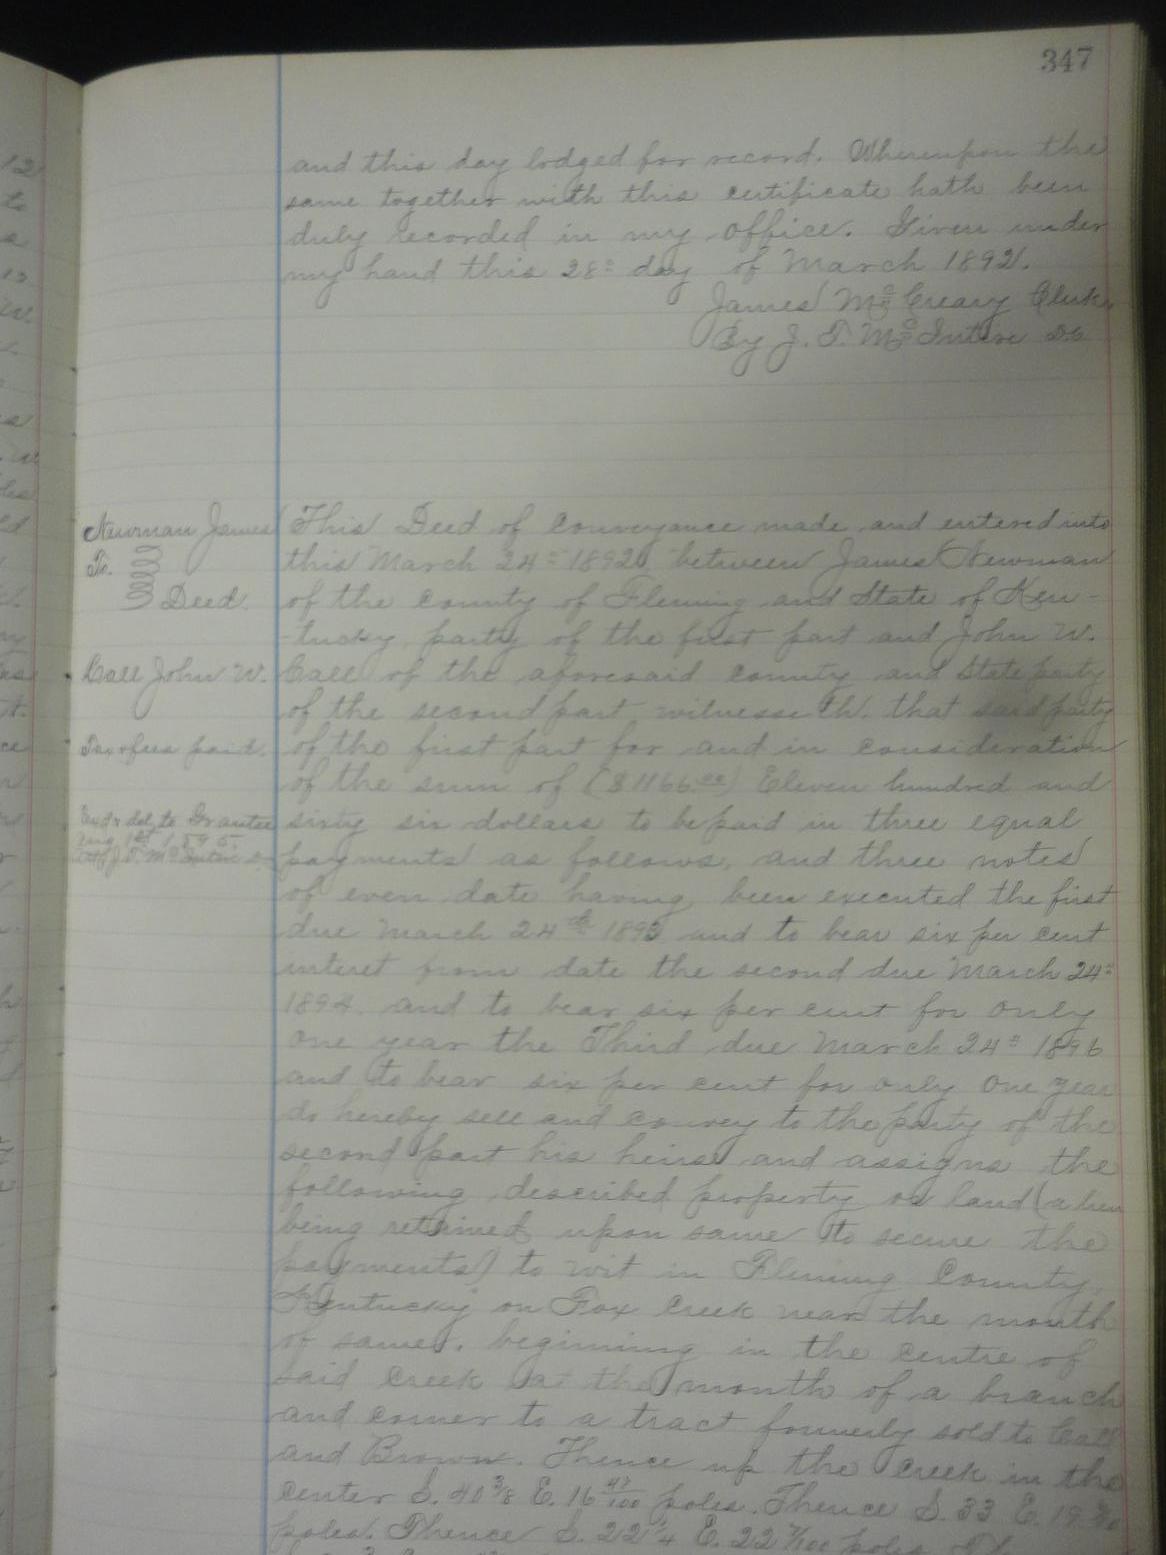 347
and this day lodged for record. Whereupon the
same together with this certificate hath been
duly recorded in my office. Given under
my hand this 28th day of March 1892.
James McCreary Clerk
By J. T. McIntire D.C.
Newman James
To.
Deed.
Call John W.
Tax & fees paid.
Exd & del, to Grantee
This Deed of Conveyance made and entered into
this March 24th 1892 between James Newman
of the County of Fleming and State of Ken-
-tucky party of the first part and John W.
Call of the aforesaid County and State party
of the second part witnesseth. that said party
of the first part for and in consideration
of the sum of ($1166.00) Eleven hundred and
sixty six dollars to be paid in three equal
payments as follows, and three notes
of even date having been executed the first
due March 24th 1893 and to bear six per cent
interet from date the second due March 24th
1894. and to bear six per cent for only
one year the Third due March 24th 1896
and to bear six per cent for only one year
do hereby sell and convey to the party of the
second part his heirs and assigns the
following described property or land (a lien
being retained upon same to secure the
payments) to wit in Fleming County,
Kentucky on Fox Creek near the mouth
of same. beginning in the centre of
said Creek at the mouth of a branch
and corner to a tract formerly sold to Call
and Brown. Thence up the Creek in the
center S. 40 3/8 E. 16 47/100 poles. Thence S. 33 E. 19
poles. Thence S. 22 1/4 E. 22 poles